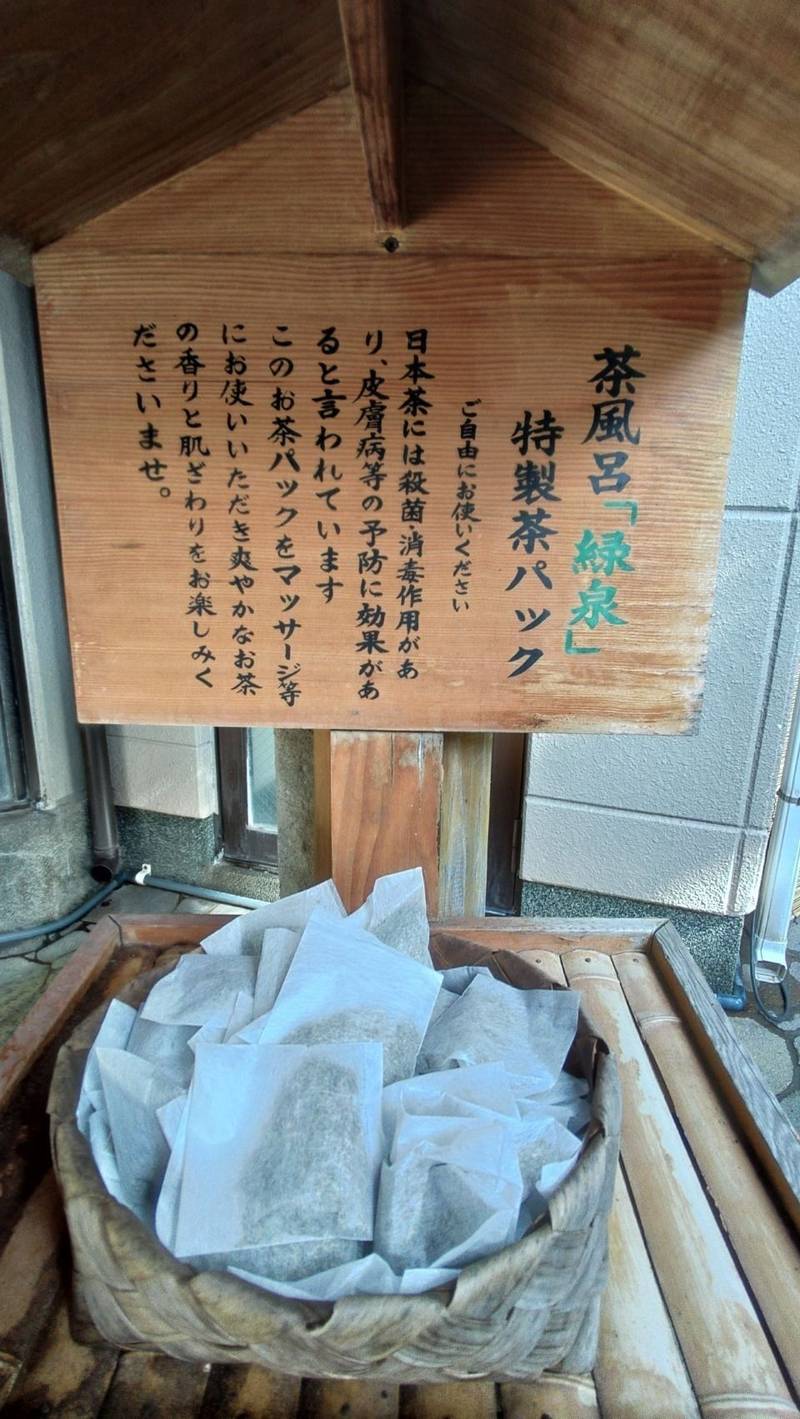 茶風呂「緑泉」
特製茶パック
ご自由にお使いください
日本茶には殺菌・消毒作用があ
り、皮膚病等の予防に効果があ
ると言われています
このお茶パックをマッサージ等
にお使いいただき爽やかなお茶
の香りと肌ざわりをお楽しみく
ださいませ。